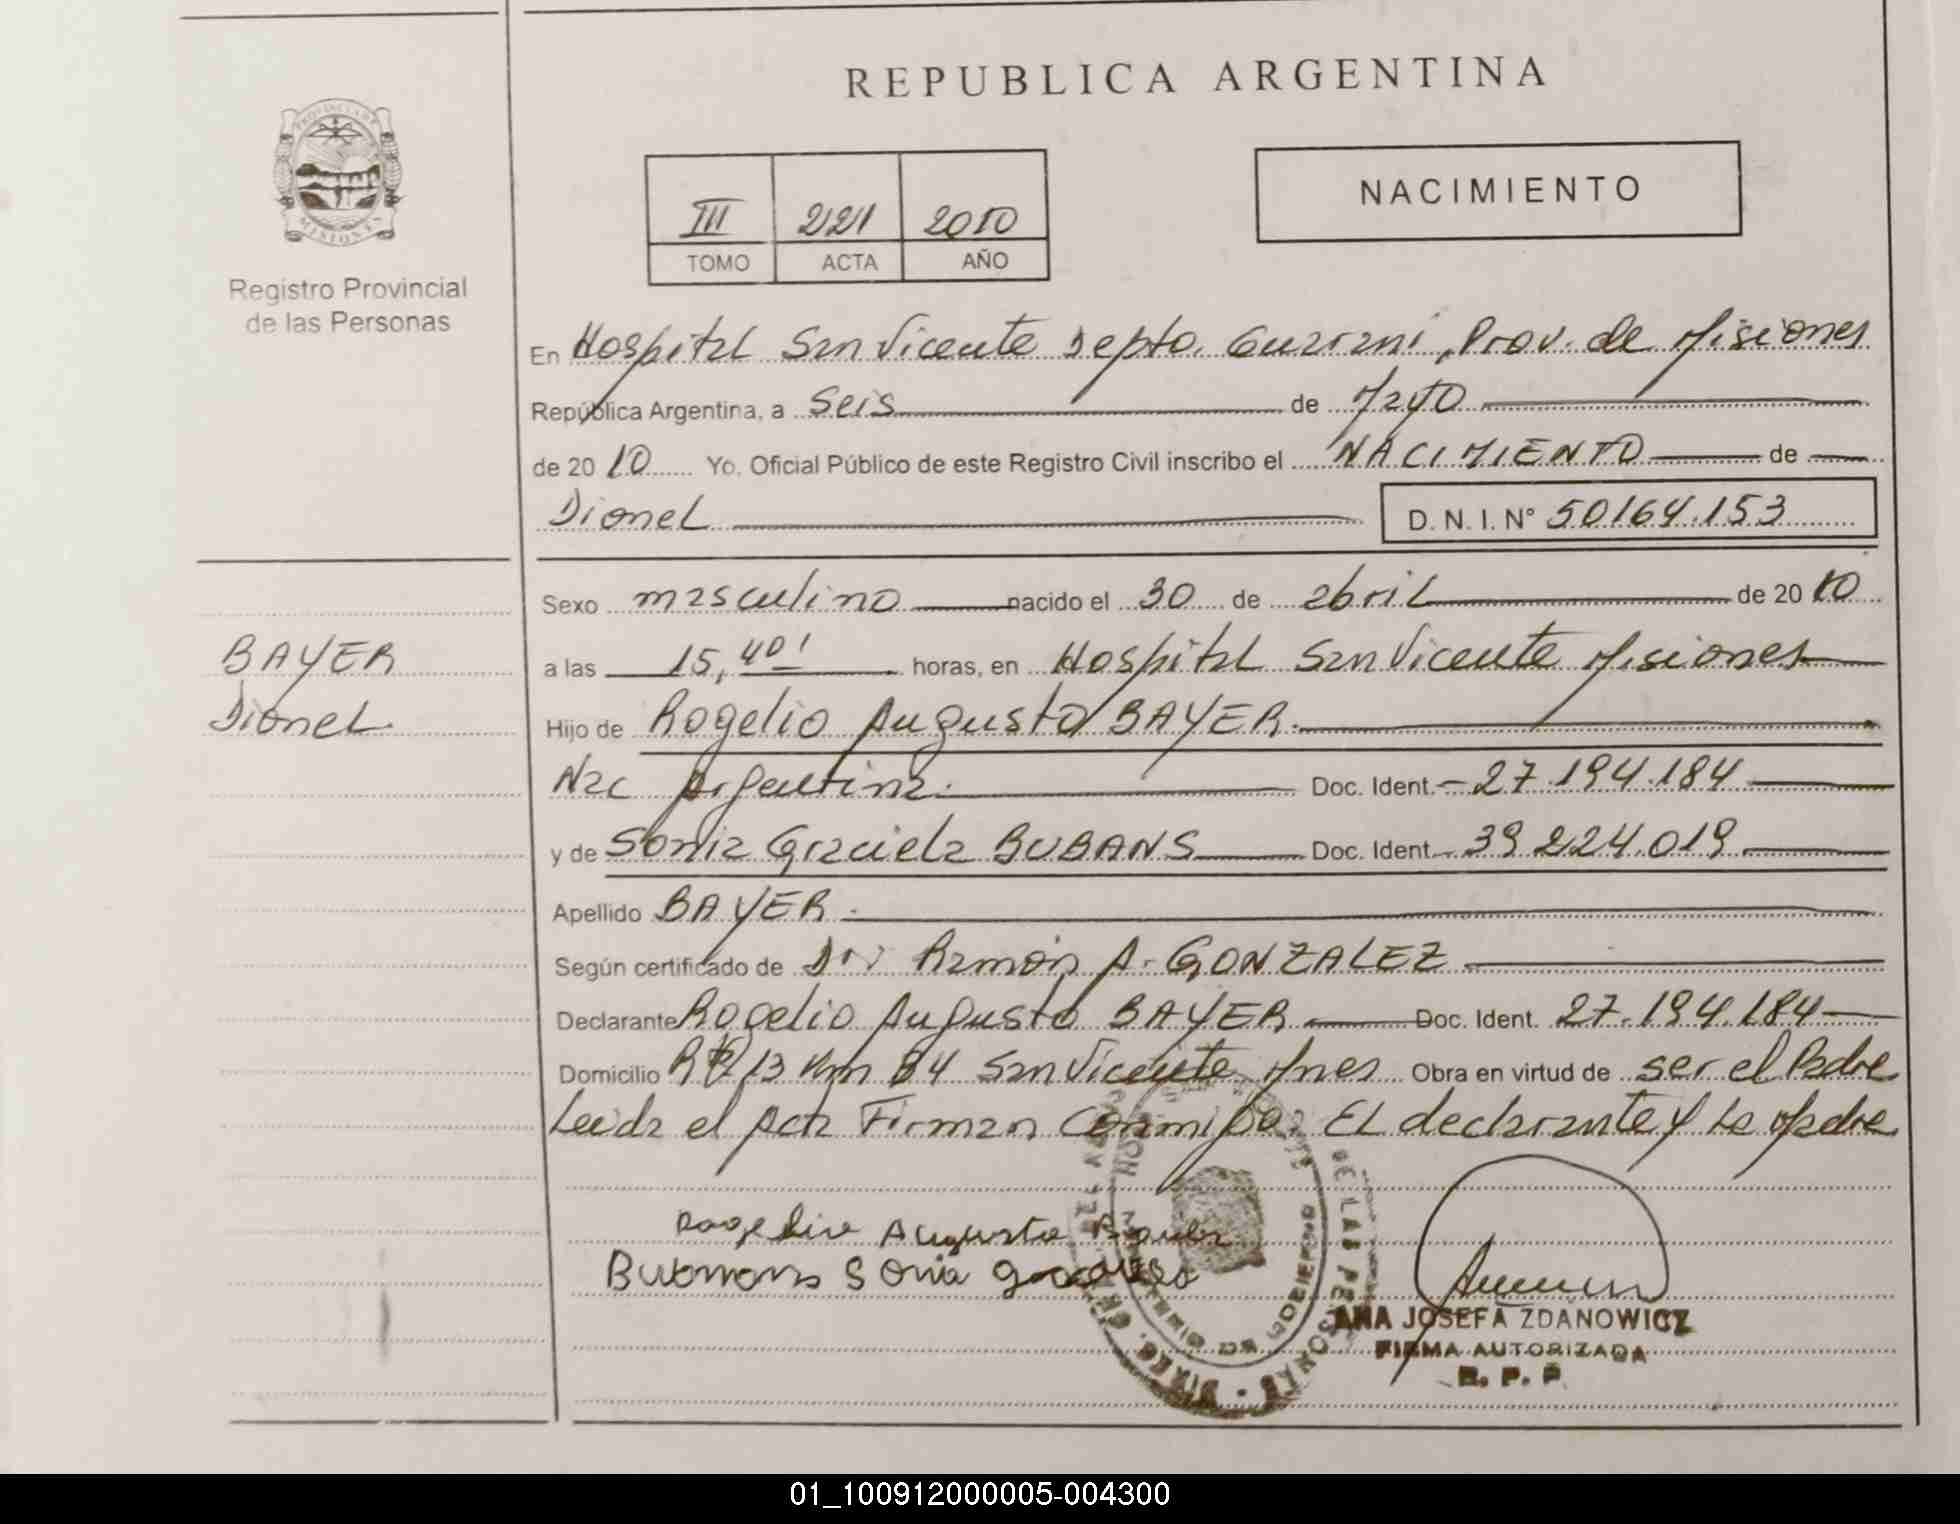 REPUBLICA ARGENTINA
PROVINCIA DE MISIONES
Registro Provincial
de las Personas
III 221 2010
TOMO ACTA AÑO
NACIMIENTO
En Hospital San Vicente Depto. Guarani, Prov. de Misiones
República Argentina, a Seis de Mayo
de 2010 Yo, Oficial Público de este Registro Civil inscribo el NACIMIENTO de
Dionel D. N. I. N° 50164.153
Sexo masculino nacido el 30 de abril de 2010
BAYER
a las 15,40' horas, en Hospital San Vicente Misiones
Dionel.
Hijo de Rogelio Augusto BAYER.
Nac Argentina. Doc. Ident. 27.194.184
y de Sonia Graciela BUBANS Doc. Ident. 39.224.019
Apellido BAYER.
Según certificado de Dr. Ramón A. GONZALEZ
Declarante Rogelio Augusto BAYER Doc. Ident. 27.194.184
Domicilio 13 Km 84 San Vicente Mnes Obra en virtud de ser el Padre
Leida el Acta Firman Conmigo. EL declarante y La Madre
Rogelio Augusto Bayer
Sonia
ANA JOSEFA ZDANOWICZ
FIRMA AUTORIZADA
R. P. P.
01_100912000005-004300